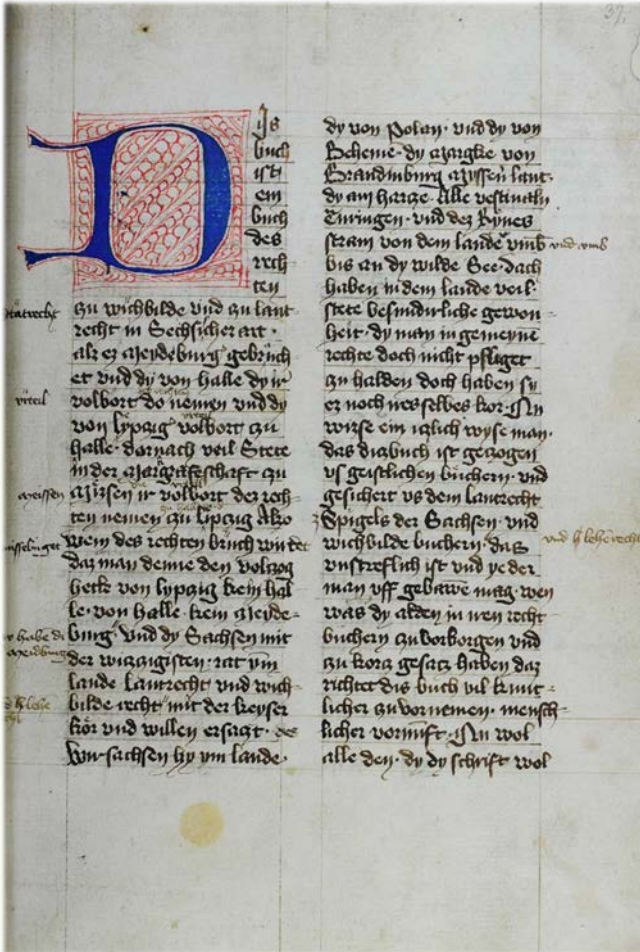 37.
Dis
buch
ist
ein
buch
des
rech
ten
zu wichbilde vnd zu lant
recht in Sechsicher art ·
als es meydeburg gebruch
et vnd dy von halle dy ir
volbort do nemen vnd dy
von lypzig volbort zu
halle · dornach veil Stete
in der margrafeschaft zu
Missen ir volbort der rech
ten nemen zu lipczig Also
wem des rechten bruch wirdet
daz man denne den volzog
hette von lypzig kein hal
le · von halle kein meyde
burg · vnd dy Sachsen mit
der wizzigisten · rat ym
lande lantrecht vnd wich
bilde recht mit der keyser
kor vnd willen ersaczt ·
wir sachsen hy ym lande ·
dy von Polan · vnd dy von
Beheme · dy margke von
Brandinburg myssen lant ·
dy am harcze · Alle vestualn
Turingen · vnd des Rynes
stram von dem lande vmb
bis an dy wilde See · dach
haben in dem lande veil
stete besundirliche gewon
heit · dy man in gemeyne
rechte doch nicht pfliget
zu halden doch haben sy
er noch ires selbes kor · Nu
wirse ein iczlich wyse man ·
das dis buch ist geczogen
vs geistlichen buchern · vnd
gesichert vs dem lantrecht
Spigels der Sachsen · vnd
wichbilde buchern · das
vnstreflich ist vnd ye der
man vff gebawe mag · wen
was dy alden in iren recht
buchern zu vorborgen vnd
zu korcz gesacz haben daz
richtet dis buch vil kunt
licher zu vornemen · mensch
licher vornunft · Nu wol
alle den · dy dy schrift wol
vrteil
meissen
vnd vmb